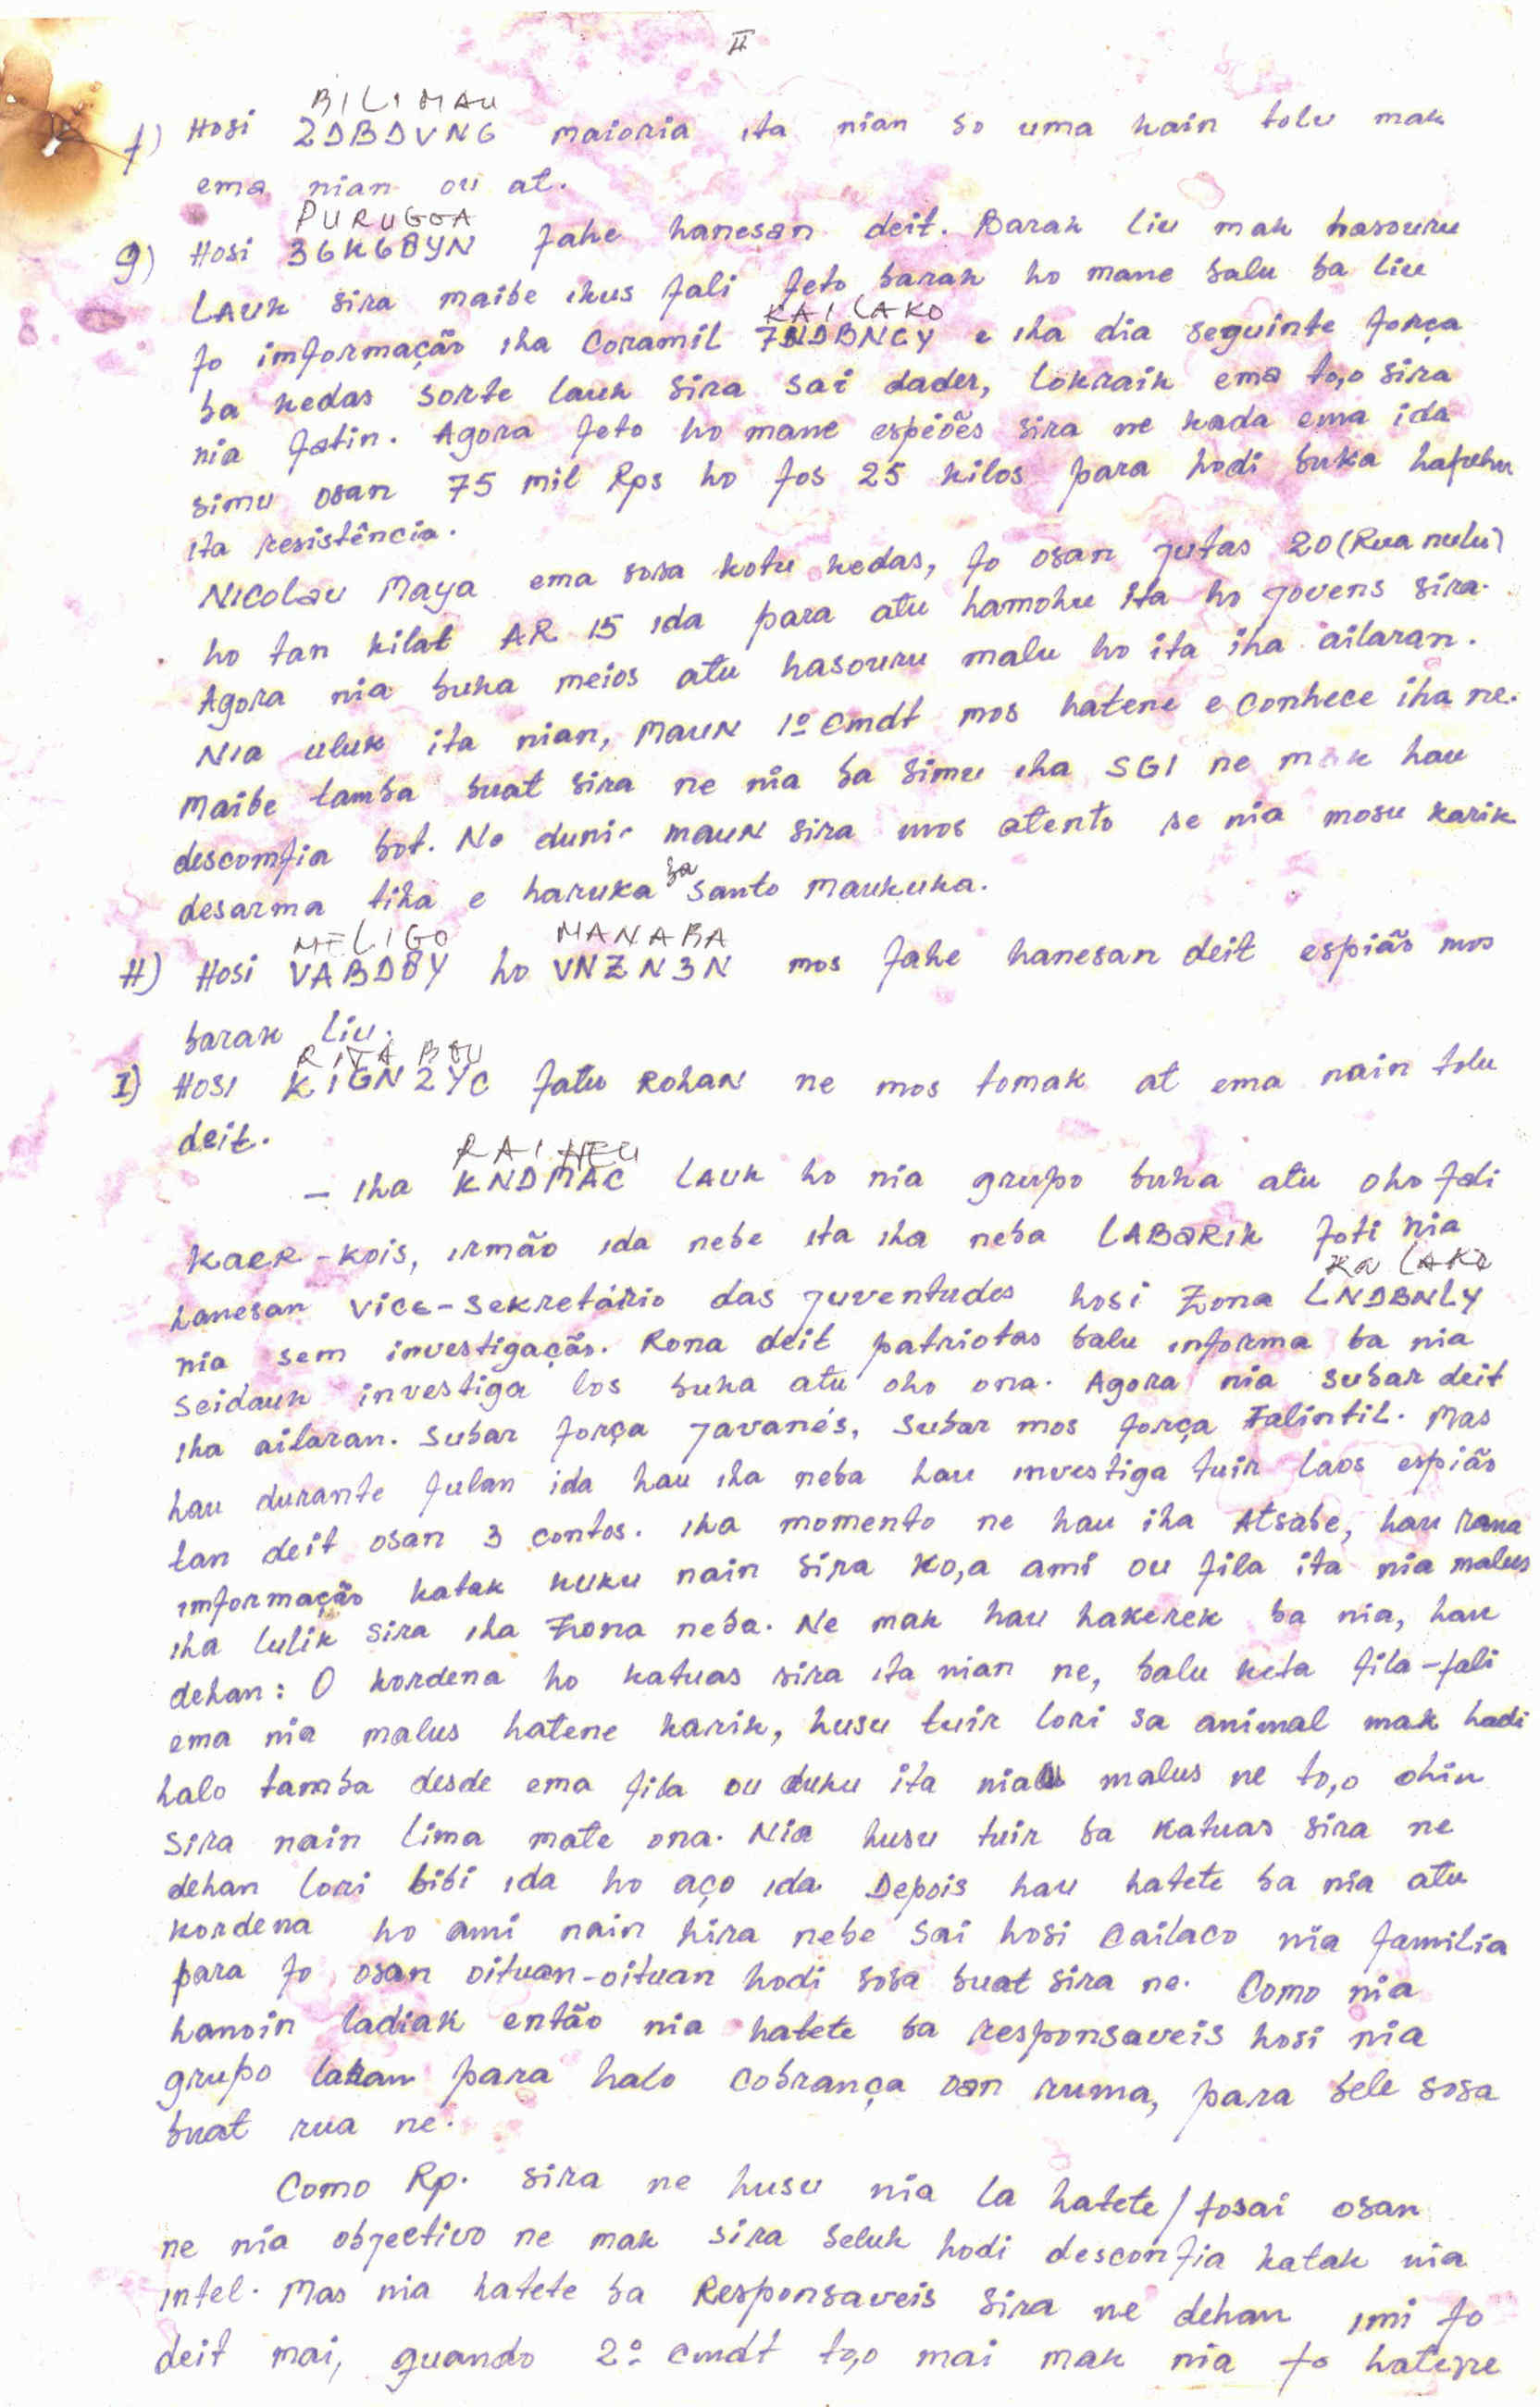 II
BILIMAU
f) Hosi 2DBDVNG maioria ita nian so uma kain tolu mak
ema nian ou at.
PURUGOA
g) Hosi 36K6BYN fahe hanesan deit. Barak liu mak hasouru
LAUK sira maibe ikus fali feto barak ho mane balu ba liu
KAILAKO
fo imformação iha Coramil 7NDBNCY e iha dia seguinte força
ba kedas sorte lauk sira sai dader, lokraik ema to,o sira
nia fatin. Agora feto ho mane espiões sira ne kada ema ida
simu osan 75 mil Rps ho fos 25 kilos para hodi buka hafuhu
ita resistência.
Nicolau Maya ema sosa kotu kedas, fo osan jutas 20 (Rua nulu)
ho tan kilat AR 15 ida para atu hamohu ita ho jovens sira.
Agora nia buka meios atu hasouru malu ho ita iha ailaran.
Nia uluk ita nian, Maun 1º Cmdt mos hatene e conhece iha ne.
Maibe tamba buat sira ne nia ba simu iha SGI ne mak hau
descomfia bot. Ne duni maun sira mos atento se nia mosu karik
desarma tiha e haruka ba Santo Maukuka.
MELIGO MANABA
H) Hosi VABDBY ho VNZN3N mos fahe hanesan deit espião mos
barak liu.
RITA BOU
I) Hosi KIGN2YC fatu Rohan ne mos tomak at ema nain tolu
deit.
RAIHEU
– Iha KNDMAC LAUK ho nia grupo buka atu oho fali
Kaer-kois, irmão ida nebe ita iha neba LABARIK foti nia
KaLAKO
hanesan Vice-Sekretário das juventudes hosi Zona LNDBNLY
nia sem investigação. Rona deit patriotas balu informa ba nia
seidauk investiga los buka atu oho ona. Agora nia subar deit
iha ailaran. Subar força javanés, Subar mos força Falintil. Mas
hau durante fulan ida hau iha neba hau investiga tuir laos espião
tan deit osan 3 contos. Iha momento ne hau iha Atsabe, hau rona
imformação katak kuku nain sira ko,a ami ou fila ita nia malus
iha lulik sira iha Zona neba. Ne mak hau hakerek ba nia, hau
dehan: O kordena ho katuas sira ita nian ne, balu keta fila-fali
ema nia malus hatene karik, husu tuir lori sa animal mak hadi
halo tamba desde ema fila ou duku ita nia malus ne to,o ohin
sira nain lima mate ona. Nia husu tuir ba katuas sira ne
dehan lori bibi ida ho aço ida. Depois hau hatete ba nia atu
kordena ho ami nain hira nebe sai hosi Cailaco nia familia
para fo osan oituan-oituan hodi sosa buat sira ne. Como nia
hanoin ladiak então nia hatete ba responsaveis hosi nia
grupo laran para halo cobrança osan ruma, para bele sosa
buat rua ne.
Como Rp. sira ne husu nia la hatete / fosai osan
ne nia objectivo ne mak sira seluk hodi desconfia katak nia
intel. Mas nia hatete ba Responsaveis sira ne dehan imi fo
deit mai, quando 2º Cmdt to,o mai mak nia fo hatene